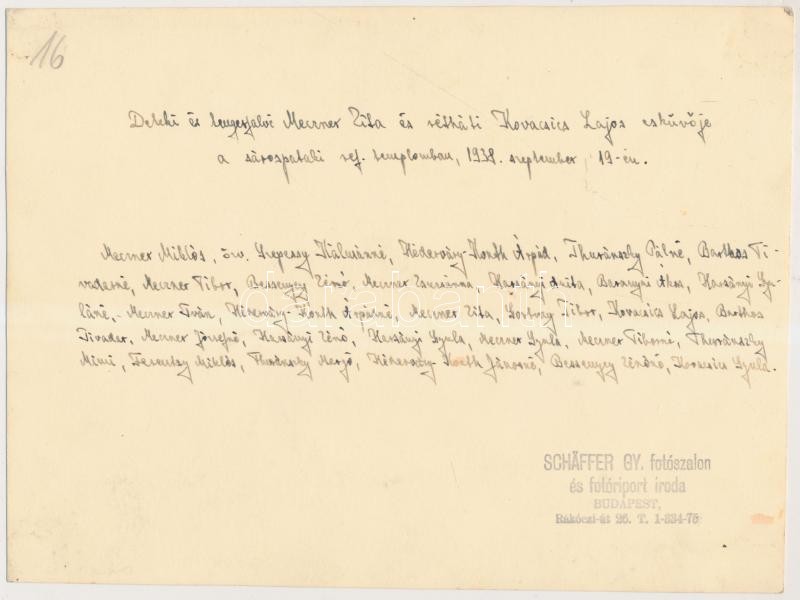 16
Deteki és tengerfalvi Meczner Zita és rétháti Kovacsics Lajos esküvője
a sárospataki ref. templomban, 1938. szeptember 19-én.
Meczner Miklós, özv. Szepessy Kálmánné, Héderváry-Konth Árpád, Thuránszky Pálné, Barthos Ti-
vadarné, Meczner Tibor, Bessenyey Zénó, Meczner Zsuzsánna, Harsányi Anita, Baranyai Ákos, Harsányi Gyu-
láné,- Meczner Iván, Héderváry-Konth Árpádné, Meczner Zita, Tibor, Kovacsics Lajos, Barthos
Tivadar, Meczner Józsefné, Harsányi Zénó, Harsányi Gyula, Meczner Gyula, Meczner Tiborné, Thuránszky
Mimi, Miklós, Thuránszky Marjó, Héderváry-Konth Jánosné, Bessenyey Zénóné, Kovacsics Gyula.
darabanth
SCHÄFFER GY. fotószalon
és fotóriport iroda
BUDAPEST,
Rákóczi-út 26. T. 1-334-75